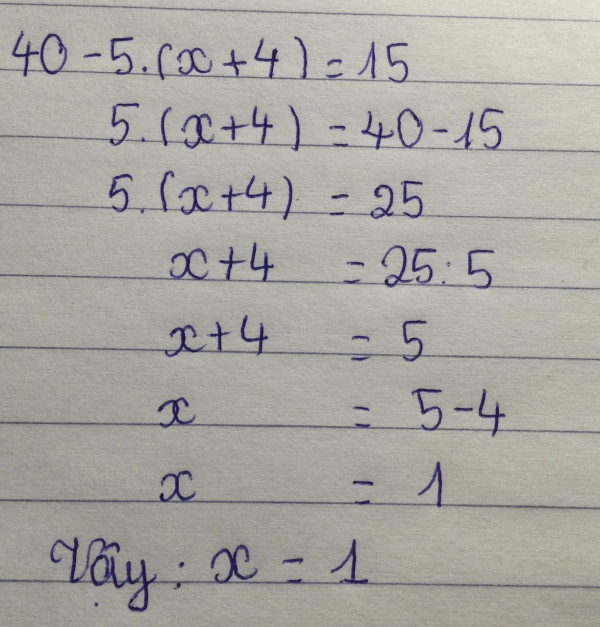 40 - 5.(x+4) = 15
5.(x+4) = 40-15
5.(x+4) = 25
x+4 = 25:5
x+4 = 5
x = 5-4
x = 1
Vậy : x = 1